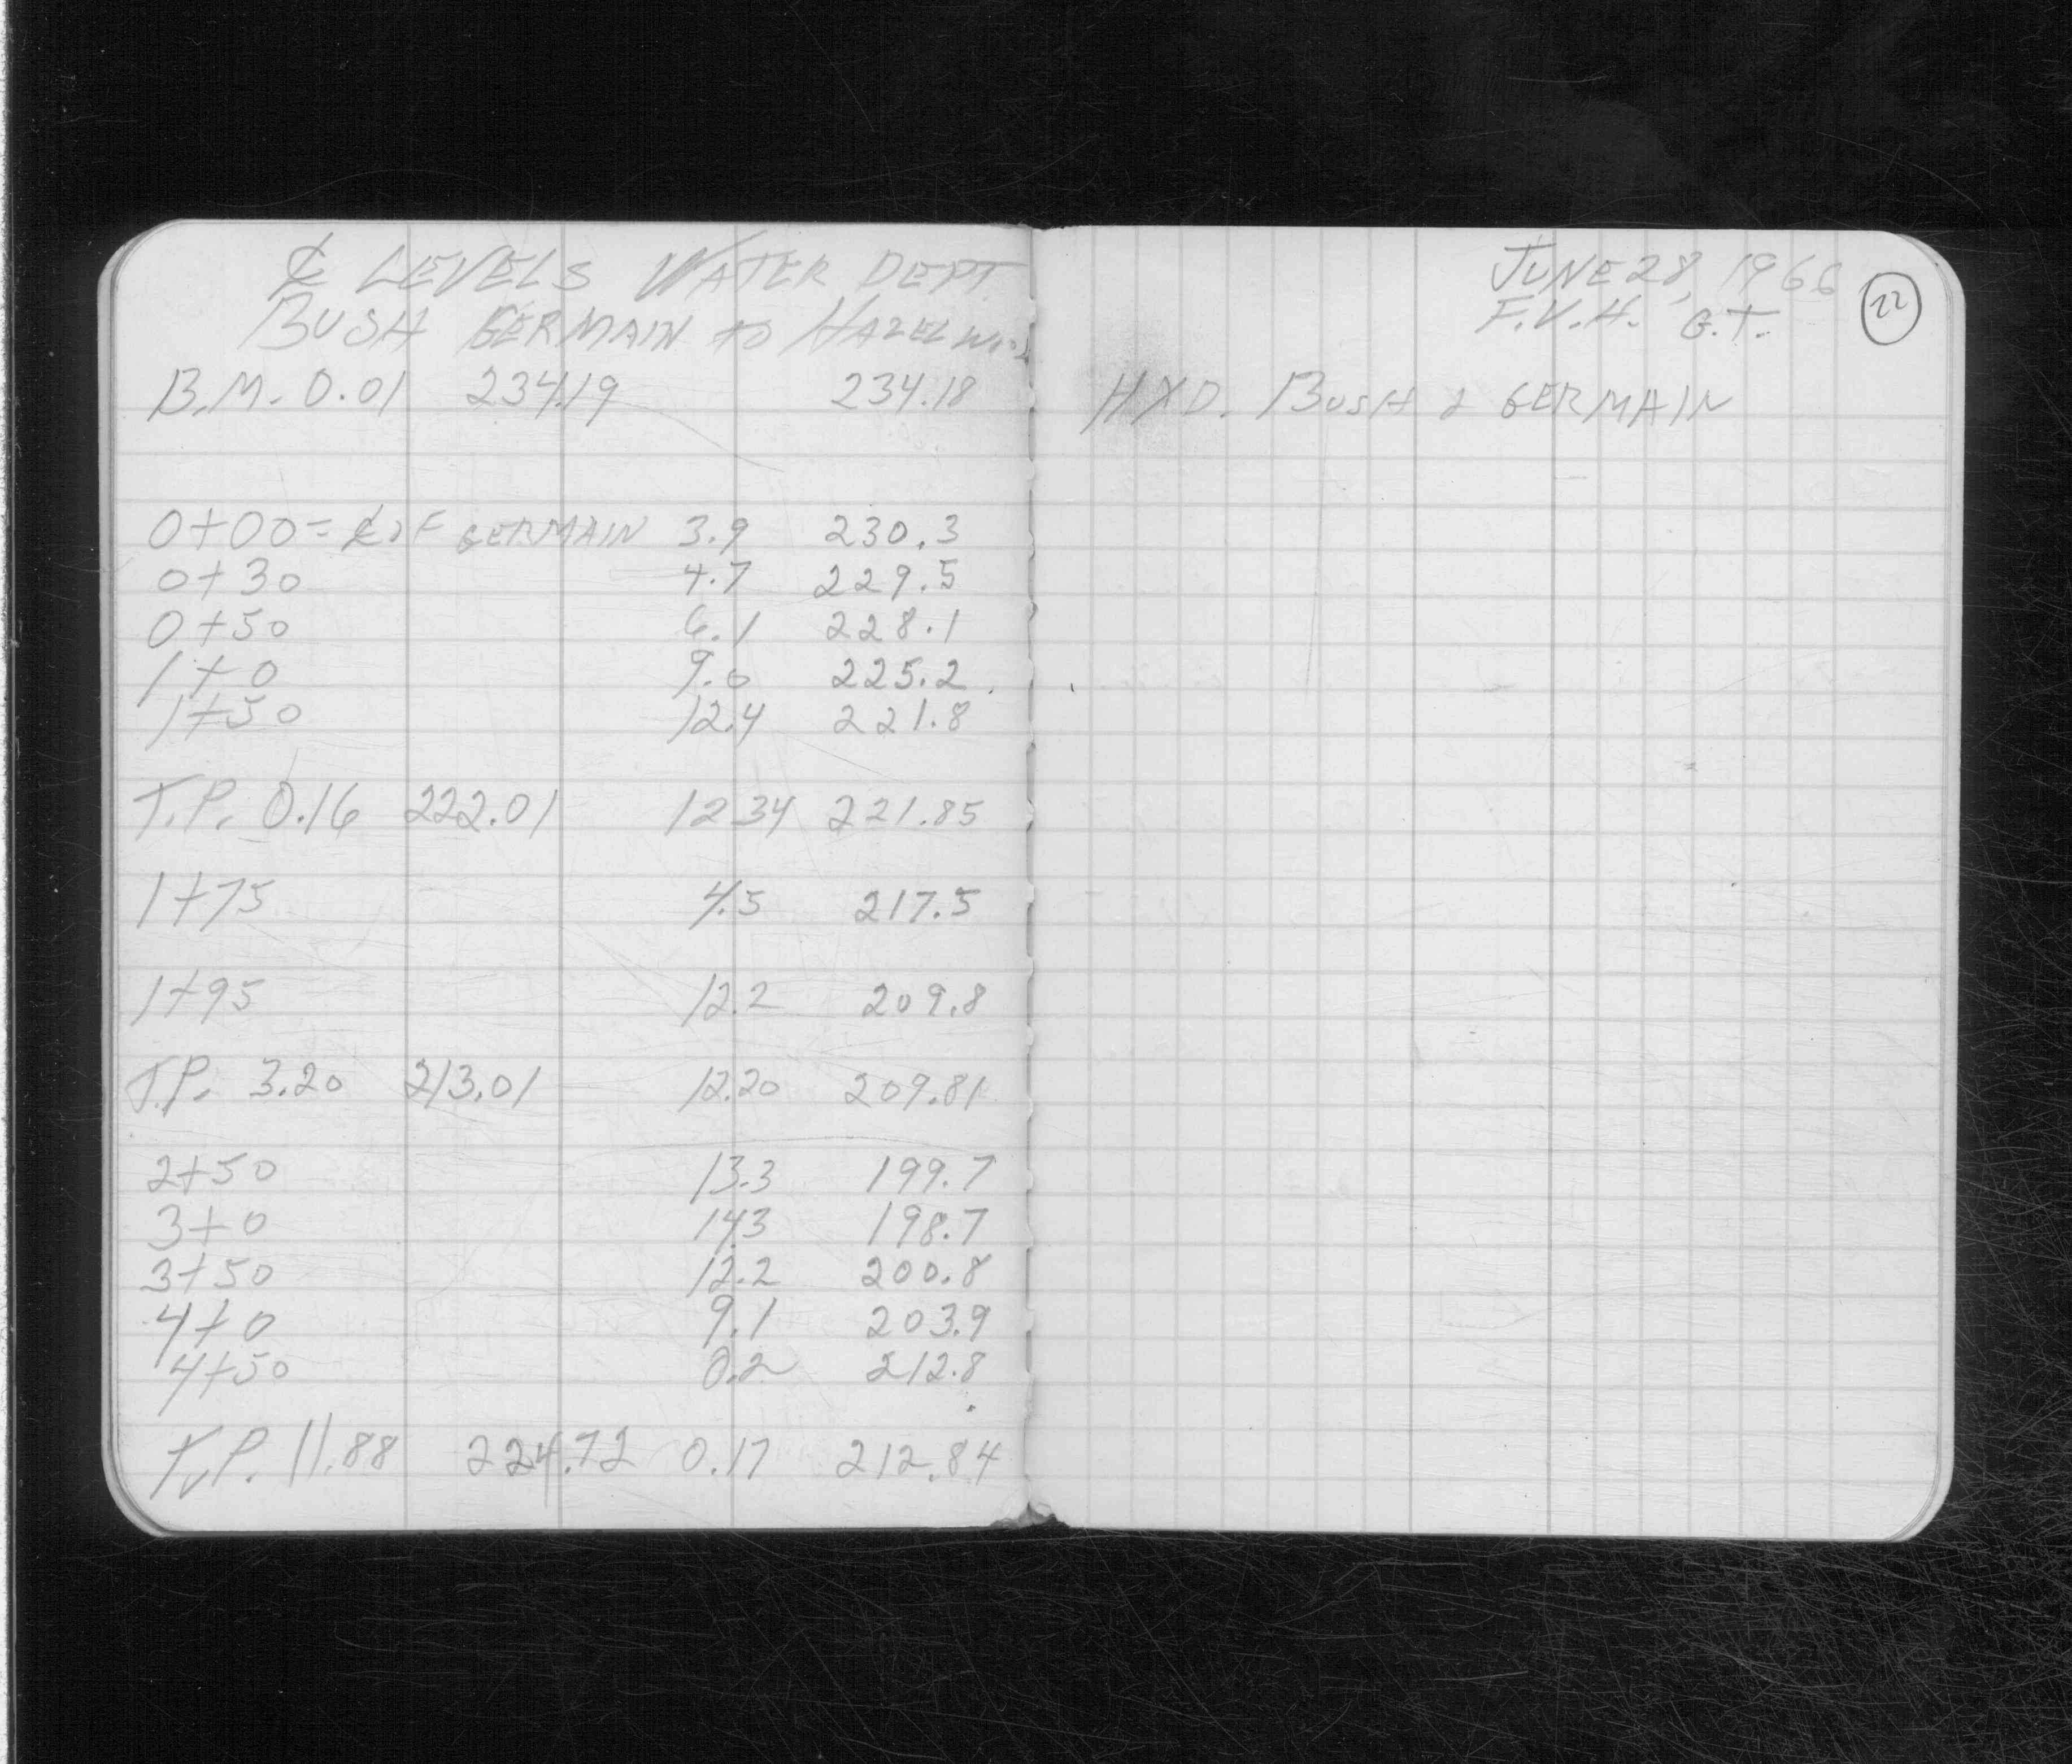 ℄ LEVELS WATER DEPT
BUSH GERMAIN TO HAZELWOOD
B.M. 0.01 234.19 234.18
0+00 = ℄ OF GERMAIN 3.9 230.3
0+30 4.7 229.5
0+50 6.1 228.1
1+0 9.0 225.2
1+50 12.4 221.8
T.P. 0.16 222.01 12 34 221.85
1+75 4.5 217.5
1+95 12.2 209.8
T.P. 3.20 213.01 12.20 209.81
2+50 13.3 199.7
3+0 14.3 198.7
3+50 12.2 200.8
4+0 9.1 203.9
4+50 0.2 212.8
T.P. 11.88 224.72 0.17 212.84
JUNE 28, 1966
F.V.H. G.T.
22
HXD. BUSH & GERMAIN